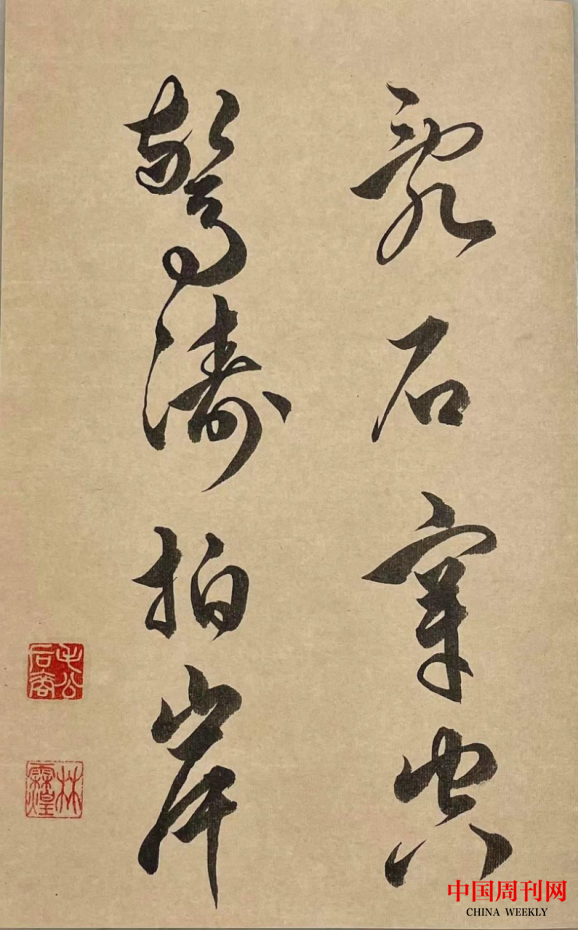 亂石穿空
驚濤拍岸
林
中国周刊网
CHINA WEEKLY